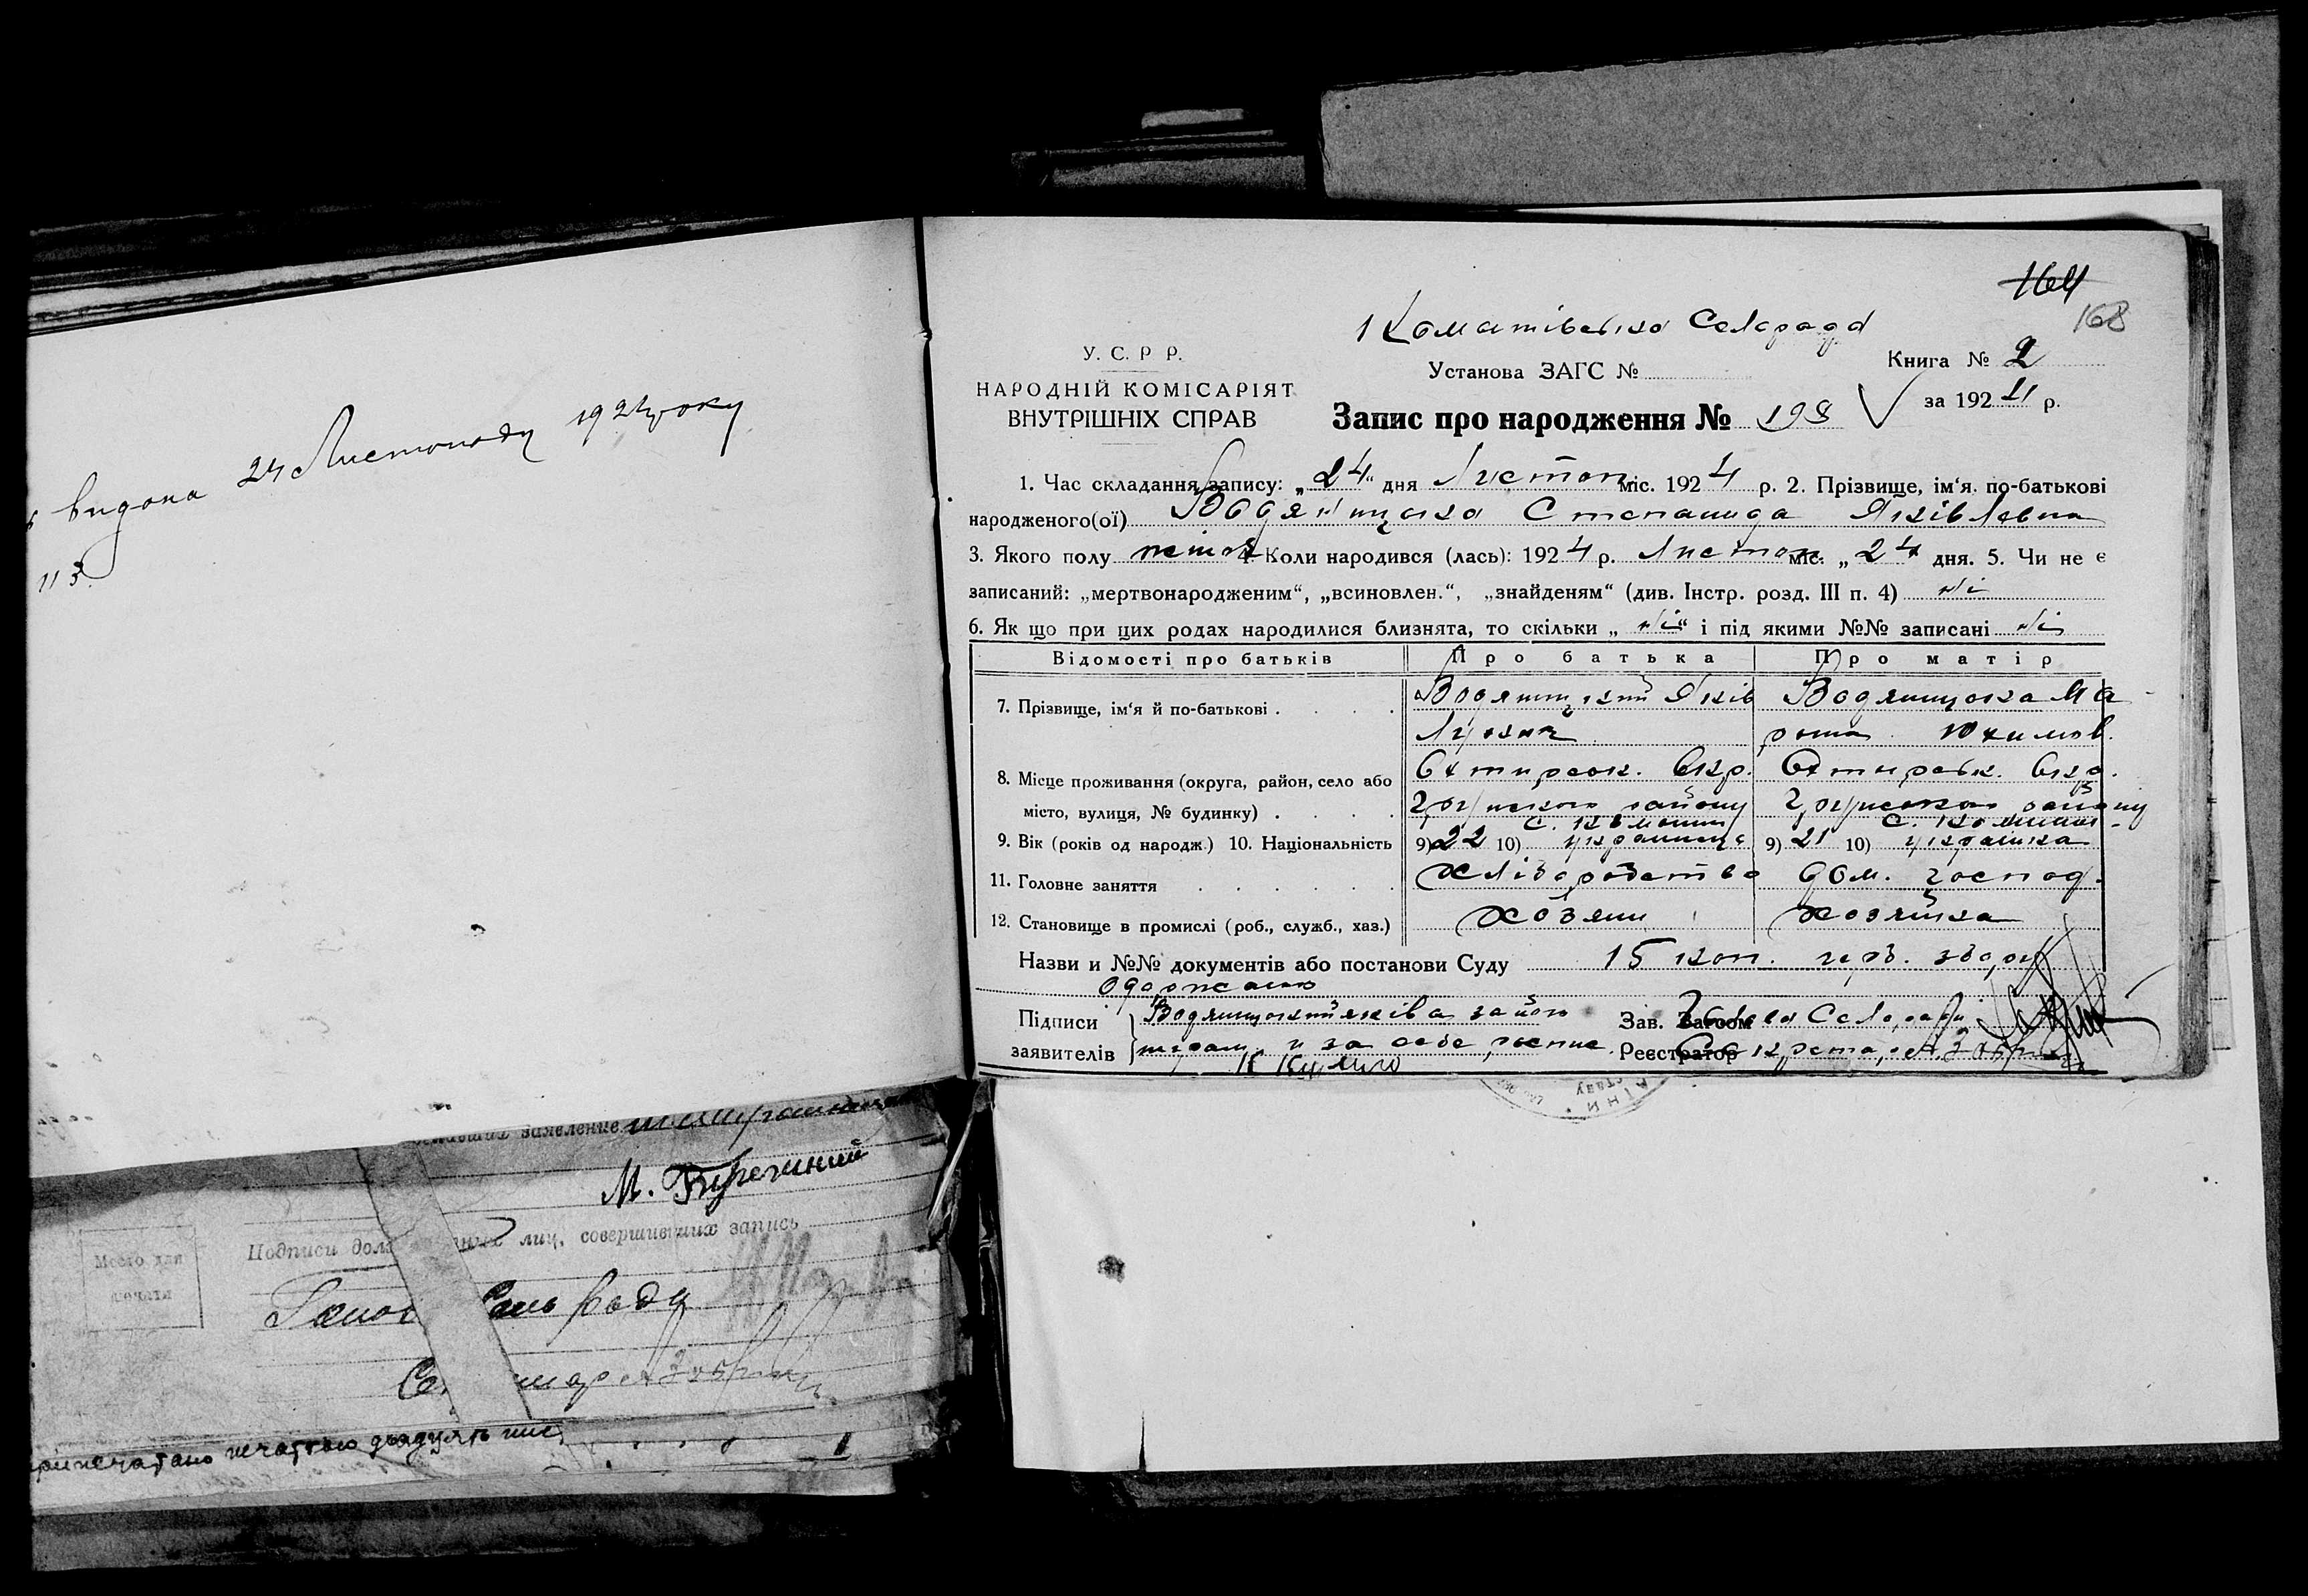 видана 24 Листопаду 1924 року
113.
заявление
М.
Место для
печати
Подписи долж лиц, совершивших запись
Сель Рада
печаткою двадцять
164
168
Коматівська Сельрада
У. С. Р Р.
НАРОДНІЙ КОМІСАРІЯТ
ВНУТРІШНІХ СПРАВ
Установа ЗАГС №
Книга № 2
за 1924 р.
Запис про народження № 198
1. Час складання запису: „24“ дня Листоп. міс. 1924 р. 2. Прізвище, ім‘я. по-батькові
народженого(ої) Водяницька Степанида Яківлевна
3. Якого полу жіноч 4. Коли народився (лась): 1924 р. Листоп міс. „24 дня. 5. Чи не є
записаний: „мертвонародженим“, „всиновлен.“, „знайденям“ (див. Інстр. розд. III п. 4) ні
6. Як що при цих родах народилися близнята, то скільки „ ні “ і під якими №№ записані ні
Відомості про батьків Про батька Про матір
7. Прізвище, ім‘я й по-батькові . Водяницький Яків Водяницька Ма
рота Юхимов.
8. Місце проживання (округа, район, село або Охтирськ. Окр. Охтирськ. Окр.
місто, вулиця, № будинку) . району району
с. с.
9. Вік (років од народж.) 10. Національність 9) 22 10) украинець 9) 21 10) украінка
11. Головне заняття хліборобство дом. господ.
12. Становище в промислі (роб., служб., хаз.) хозяин хозяйка
Назви и №№ документів або постанови Суду 15 коп. герб. збору
одержано
Підписи Водяницький Яків а за його Зав. Загсом Голова Сельради
заявителів и за себе роспис. Реєстратор Секретар